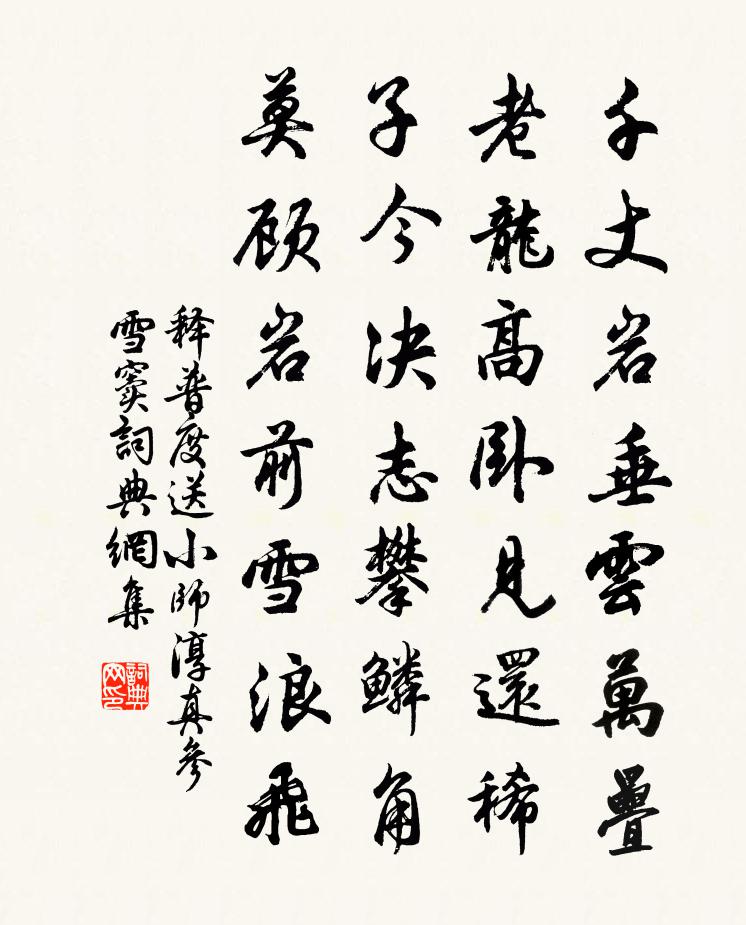 千丈岩垂雲萬疊
老龍高卧見還稀
子今决志攀鱗角
莫顾岩前雪浪飛
释普度送小師淳真參
雪窦詞典網集
詞典网印